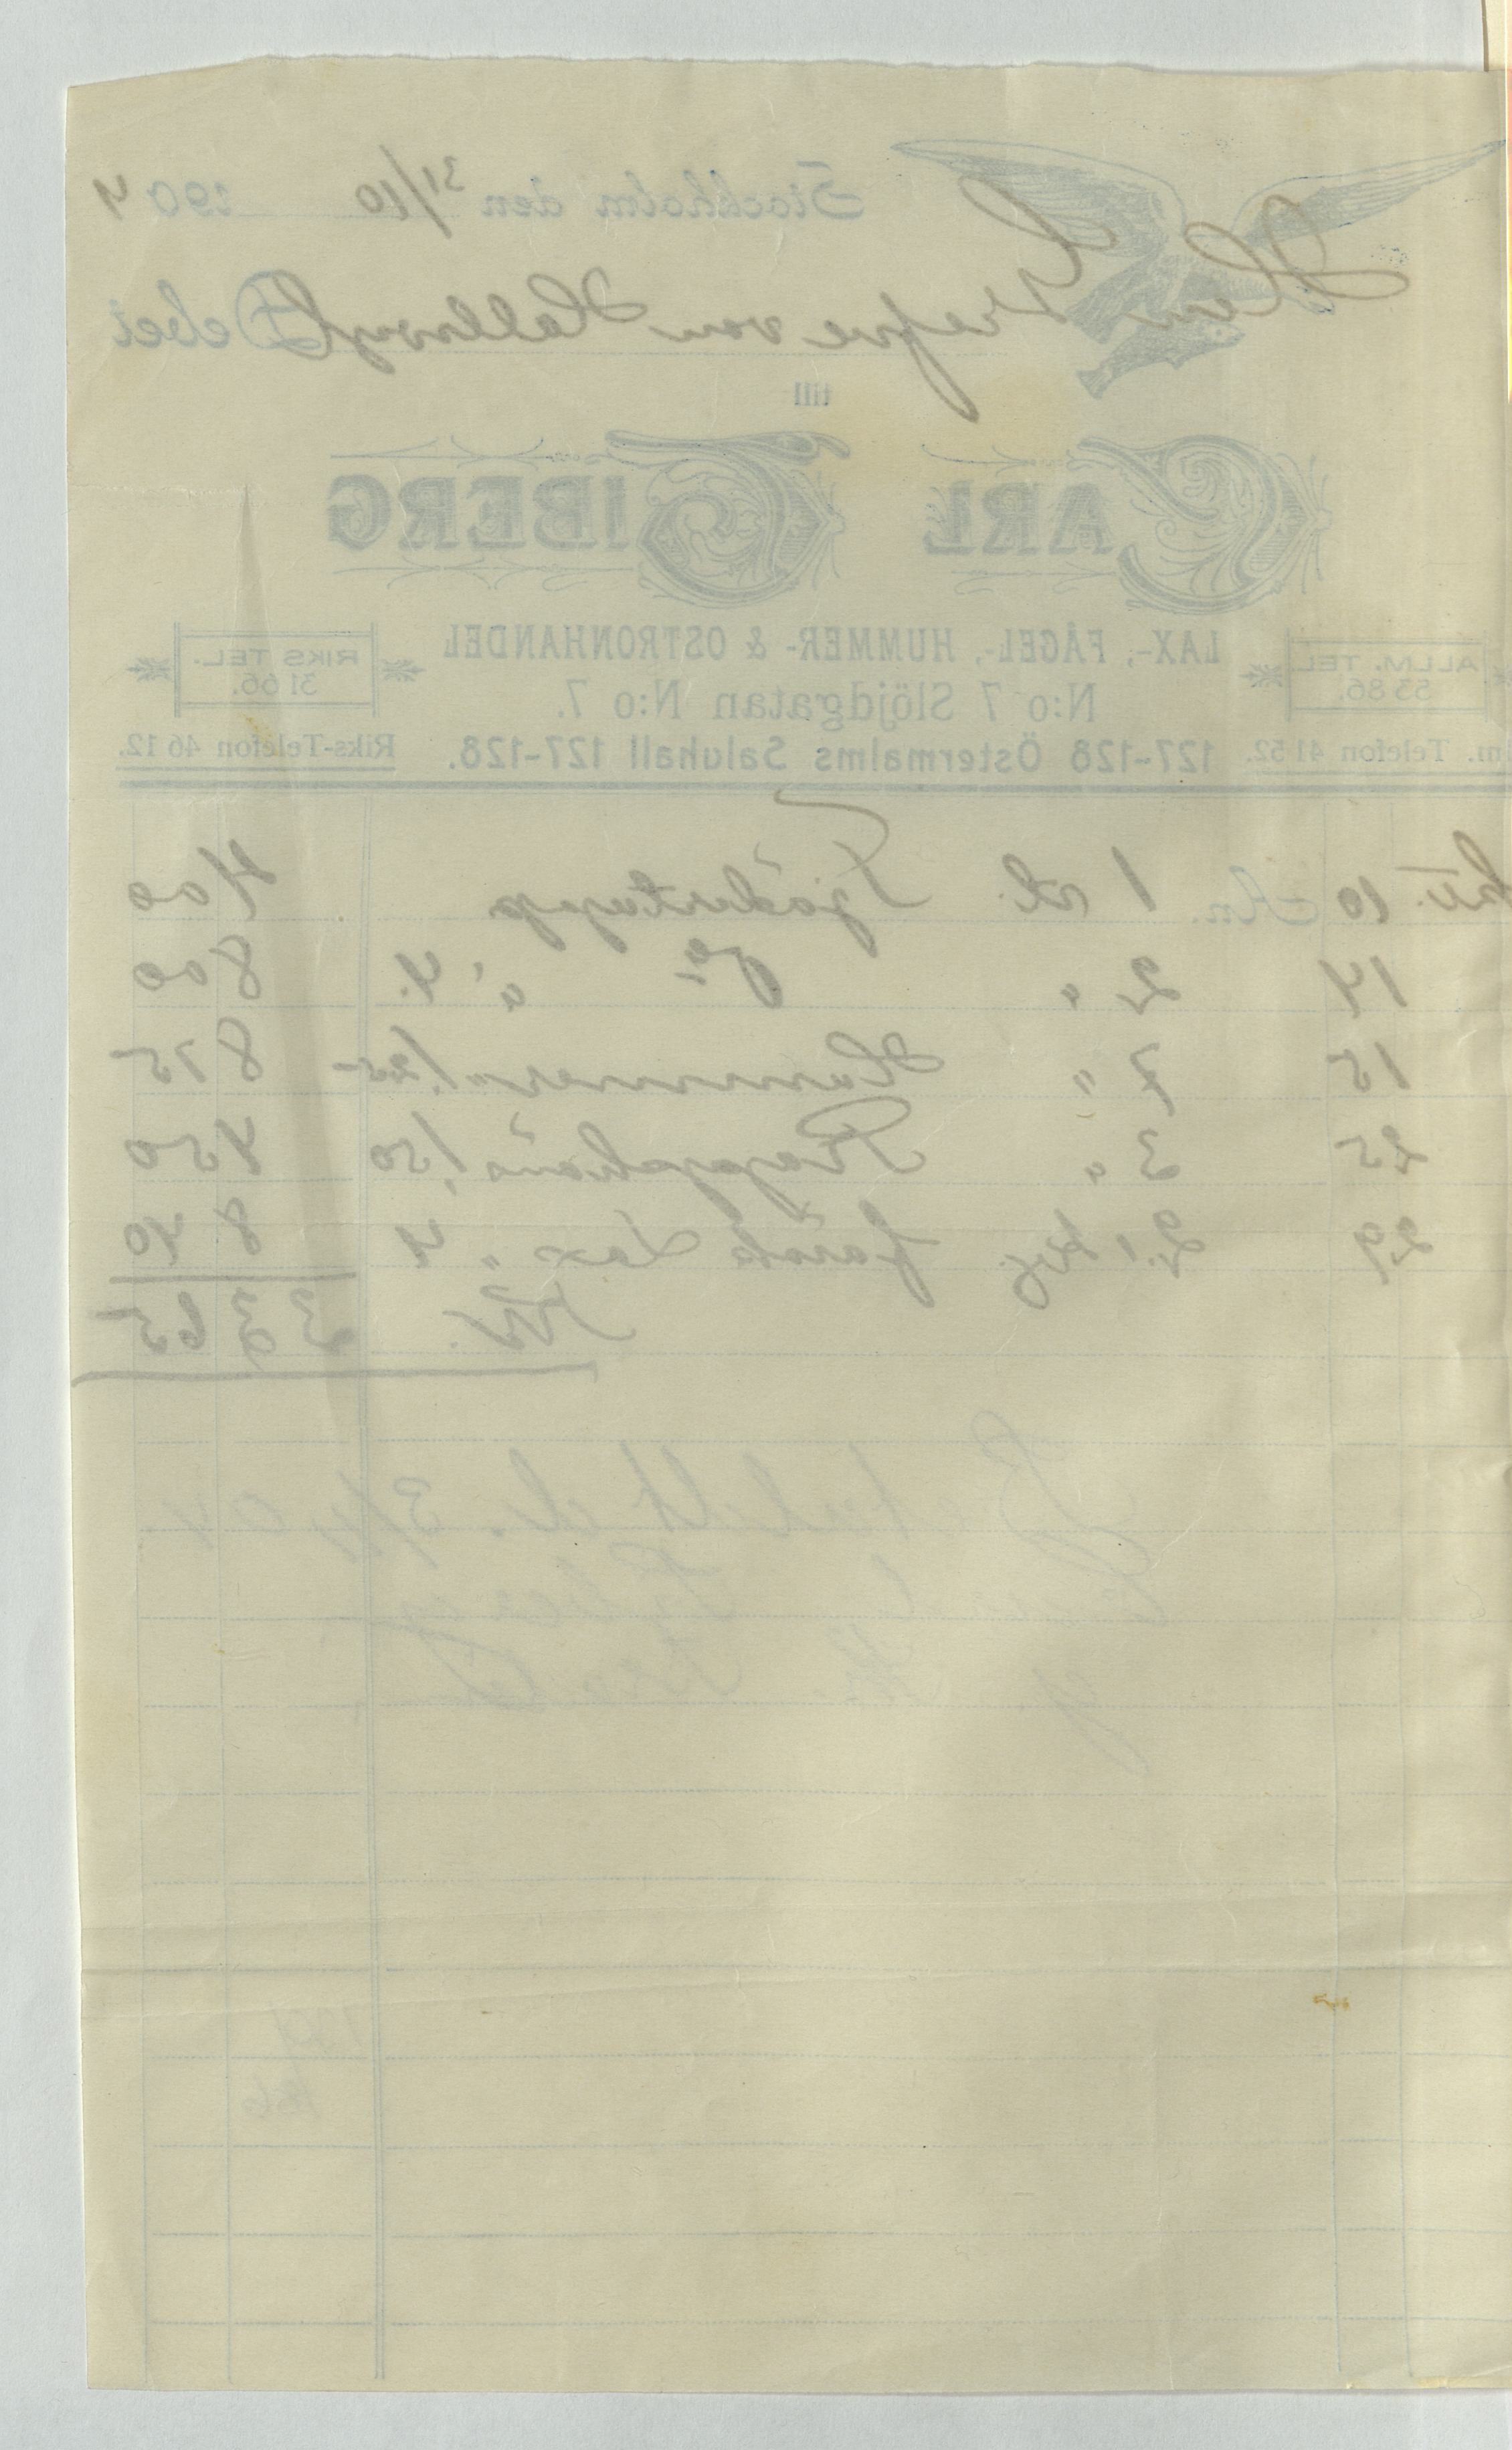 Stockholm den 31/10 1904
Herr Grefve von Hallwyl Debet
till
CARL TIBERG
LAX-, FÅGEL-, HUMMER- & OSTRONHANDEL
ALLM. TEL. 53 86.
RIKS TEL. 31 66.
N:o 7 Slöjdgatan N:o 7.
m. Telefon 41 52. 127-128 Östermalms Saluhall 127-128. Riks-Telefon 46 12.
10 An 1 st. Tjädertupp 4 00
14 2 " do à 4. 8 00
15 7 " Hummer " 1,25 8 75
25 3 " Rapphöns 1,50 4 50
29 2,1 kg. färsk Lax " 4 8 40
Kr. 33 65
Betaldt d. 3/11 04
Carl Tiberg